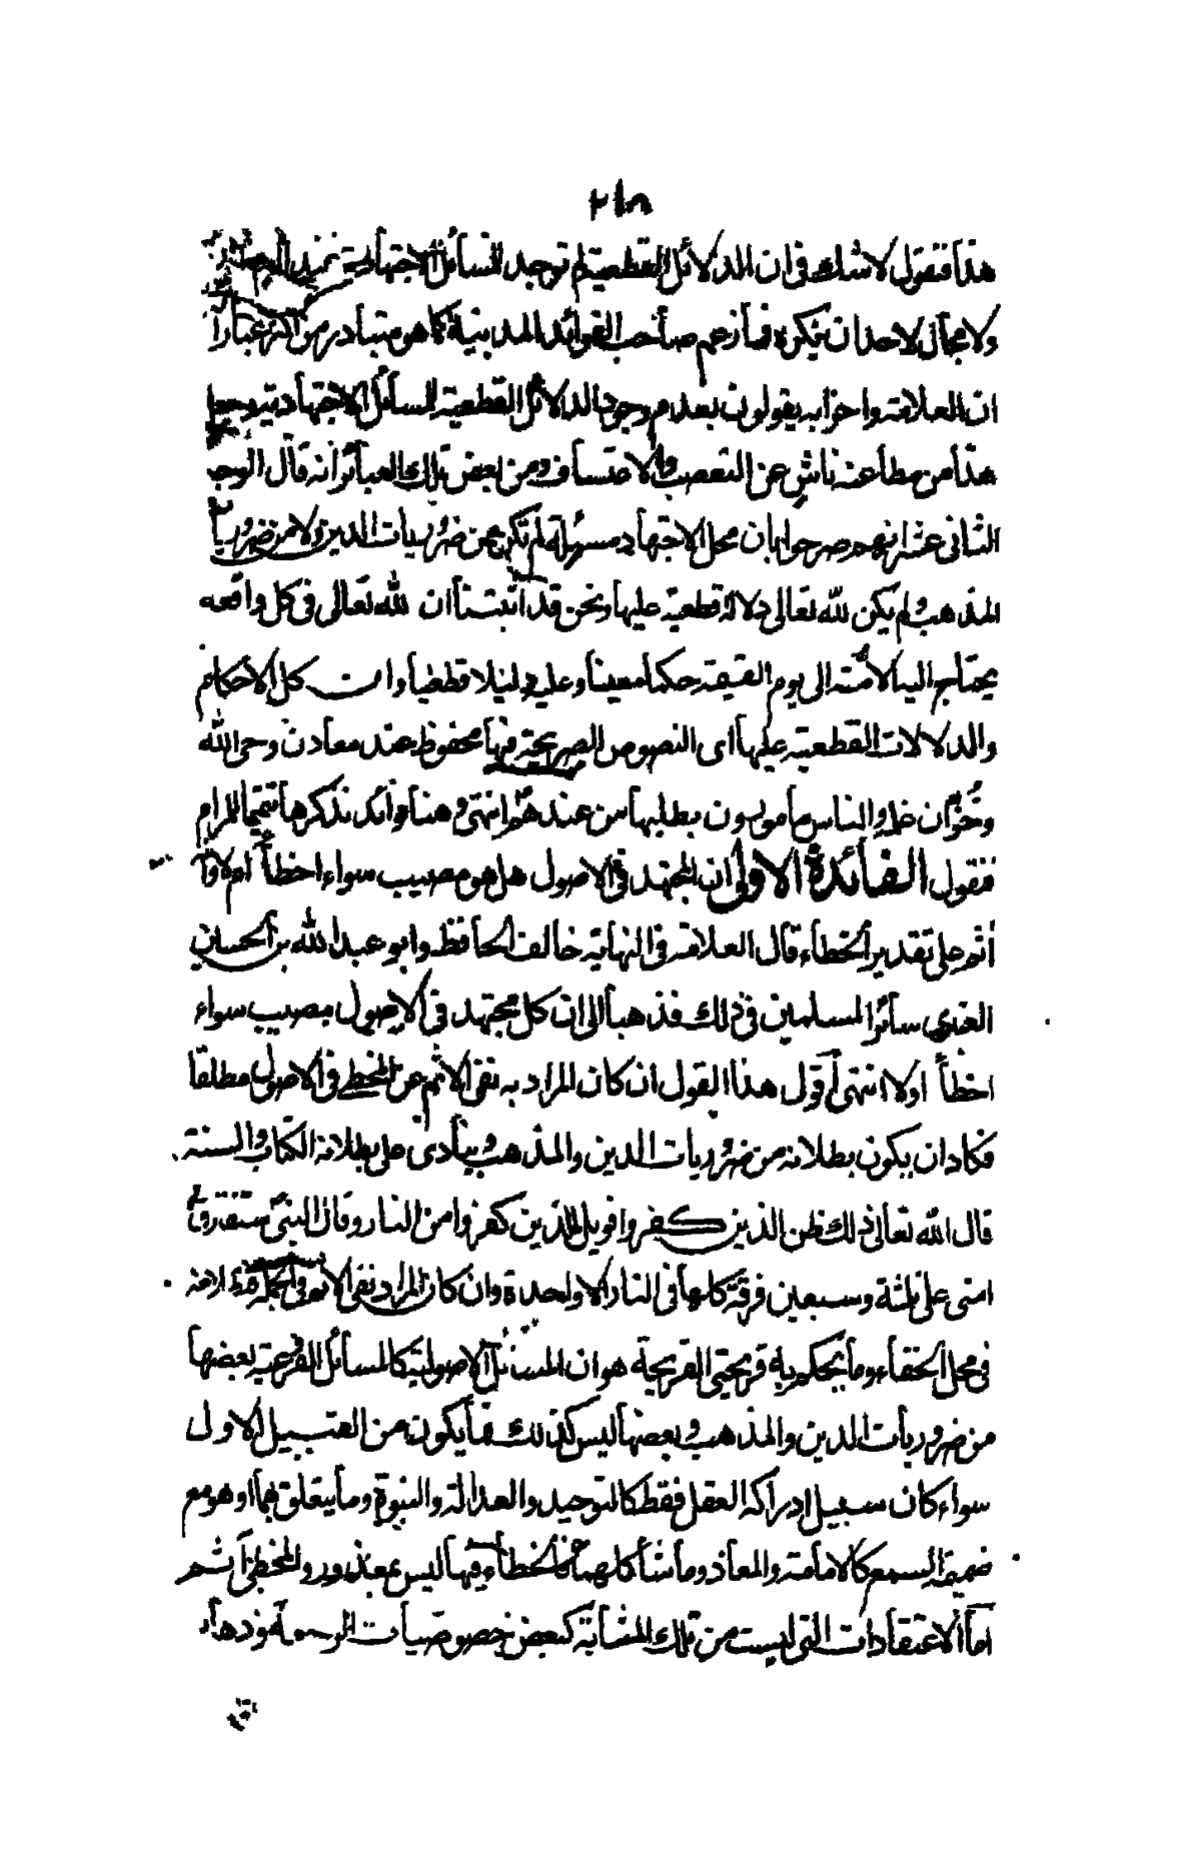 ٢١٨
هذا فنقول لا شك فى ان الدلائل القطعية لم توجد للمسائل الاجتهادية
ولا مجال لاحد ان ينكره فما زعم صاحب الفوائد المدينية كما هو متبادر من اكثر عباراته
ان العلامة واحزابه يقولون بعدم وجود الدلائل القطعية للمسائل الاجتهادية وجعل
هذا من مطاعنه ناش عن التعصب والاعتساف ومن بعض تلك العبائر انه قال الوجه
الثانى عشر انهم صرحوا بان محل الاجتهاد مسئلة لم تكن من ضروريات الدين ولا من ضروريات
المذهب ولم يكن لله تعالى دلالة قطعية عليها ونحن قد اثبتنا ان لله تعالى فى كل واقعه
يحتاج اليه الامة الى يوم القيمة حكما معينا وعليه دليلا قطعيا وان كل الاحكام
والدلالات القطعية عليها اى النصوص الصريحة فيها محفوظ عند معادن وحى الله
وخزان علمه والناس مأمورون بطلبها من عندهم انتهى وهنا فوائد نذكرها تتميما للمرام
فنقول الفائدة الاولى ان المجتهد فى الاصول هل هو مصيب سواء اخطأ ام لا
اثم على تقدير الخطاء قال العلامة فى النهاية خالف الجاحظ وابو عبد الله بن الحسن
العنبرى سائر المسلمين فى ذلك فذهبا الى ان كل مجتهد فى الاصول مصيب سواء
اخطأ اولا انتهى اقول هذا القول ان كان المراد به نفى الاثم عن المخطى فى الاصول مطلقا
فكاد ان يكون بطلانه من ضروريات الدين والمذهب وينادى على بطلانه الكتاب والسنة
قال الله تعالى ذلك ظن الذين كفروا فويل للذين كفروا من النار وقال النبى ستفترق
امتى على ثلثة وسبعين فرقة كلها فى النار الا واحدة وان كان المراد نفى الاثم فى الجملة
فى محل الخفاء وما يحكم به قريحتى القريحة هو ان المسائل الاصولية كالمسائل الفرعية بعضها
من ضروريات الدين والمذهب وبعضها ليس كذلك فما يكون من القبيل الاول
سواء كان سبيل ادراكه العقل فقط كالتوحيد والعدالة والنبوة وما يتعلق بهما او هو مع
ضميمة السمع كالامامة والمعاد وما شاكلهما فالخطاء فيها ليس بمعذور والمخطى آثم
اما الاعتقادات التى ليست من تلك المثابة كبعض خصوصيات